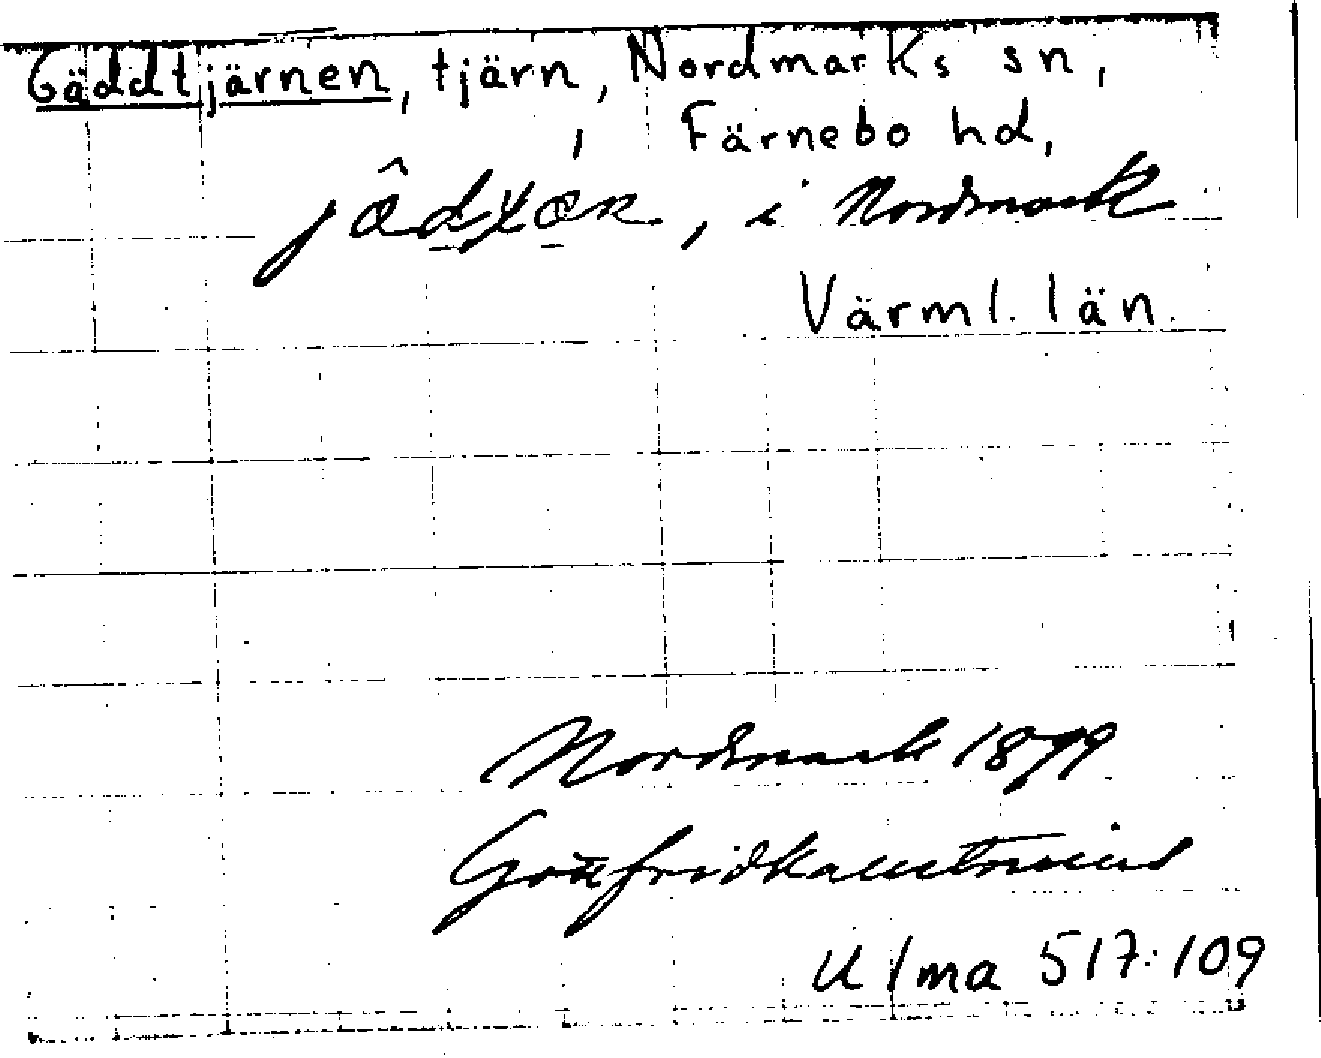 Gäddtjärnen, tjärn, Nordmarks sn,
Färnebo hd,
i Nordmark
Värml. län.
Nordmark 1899
Gottfrid Kallstenius
Ulma 517:109